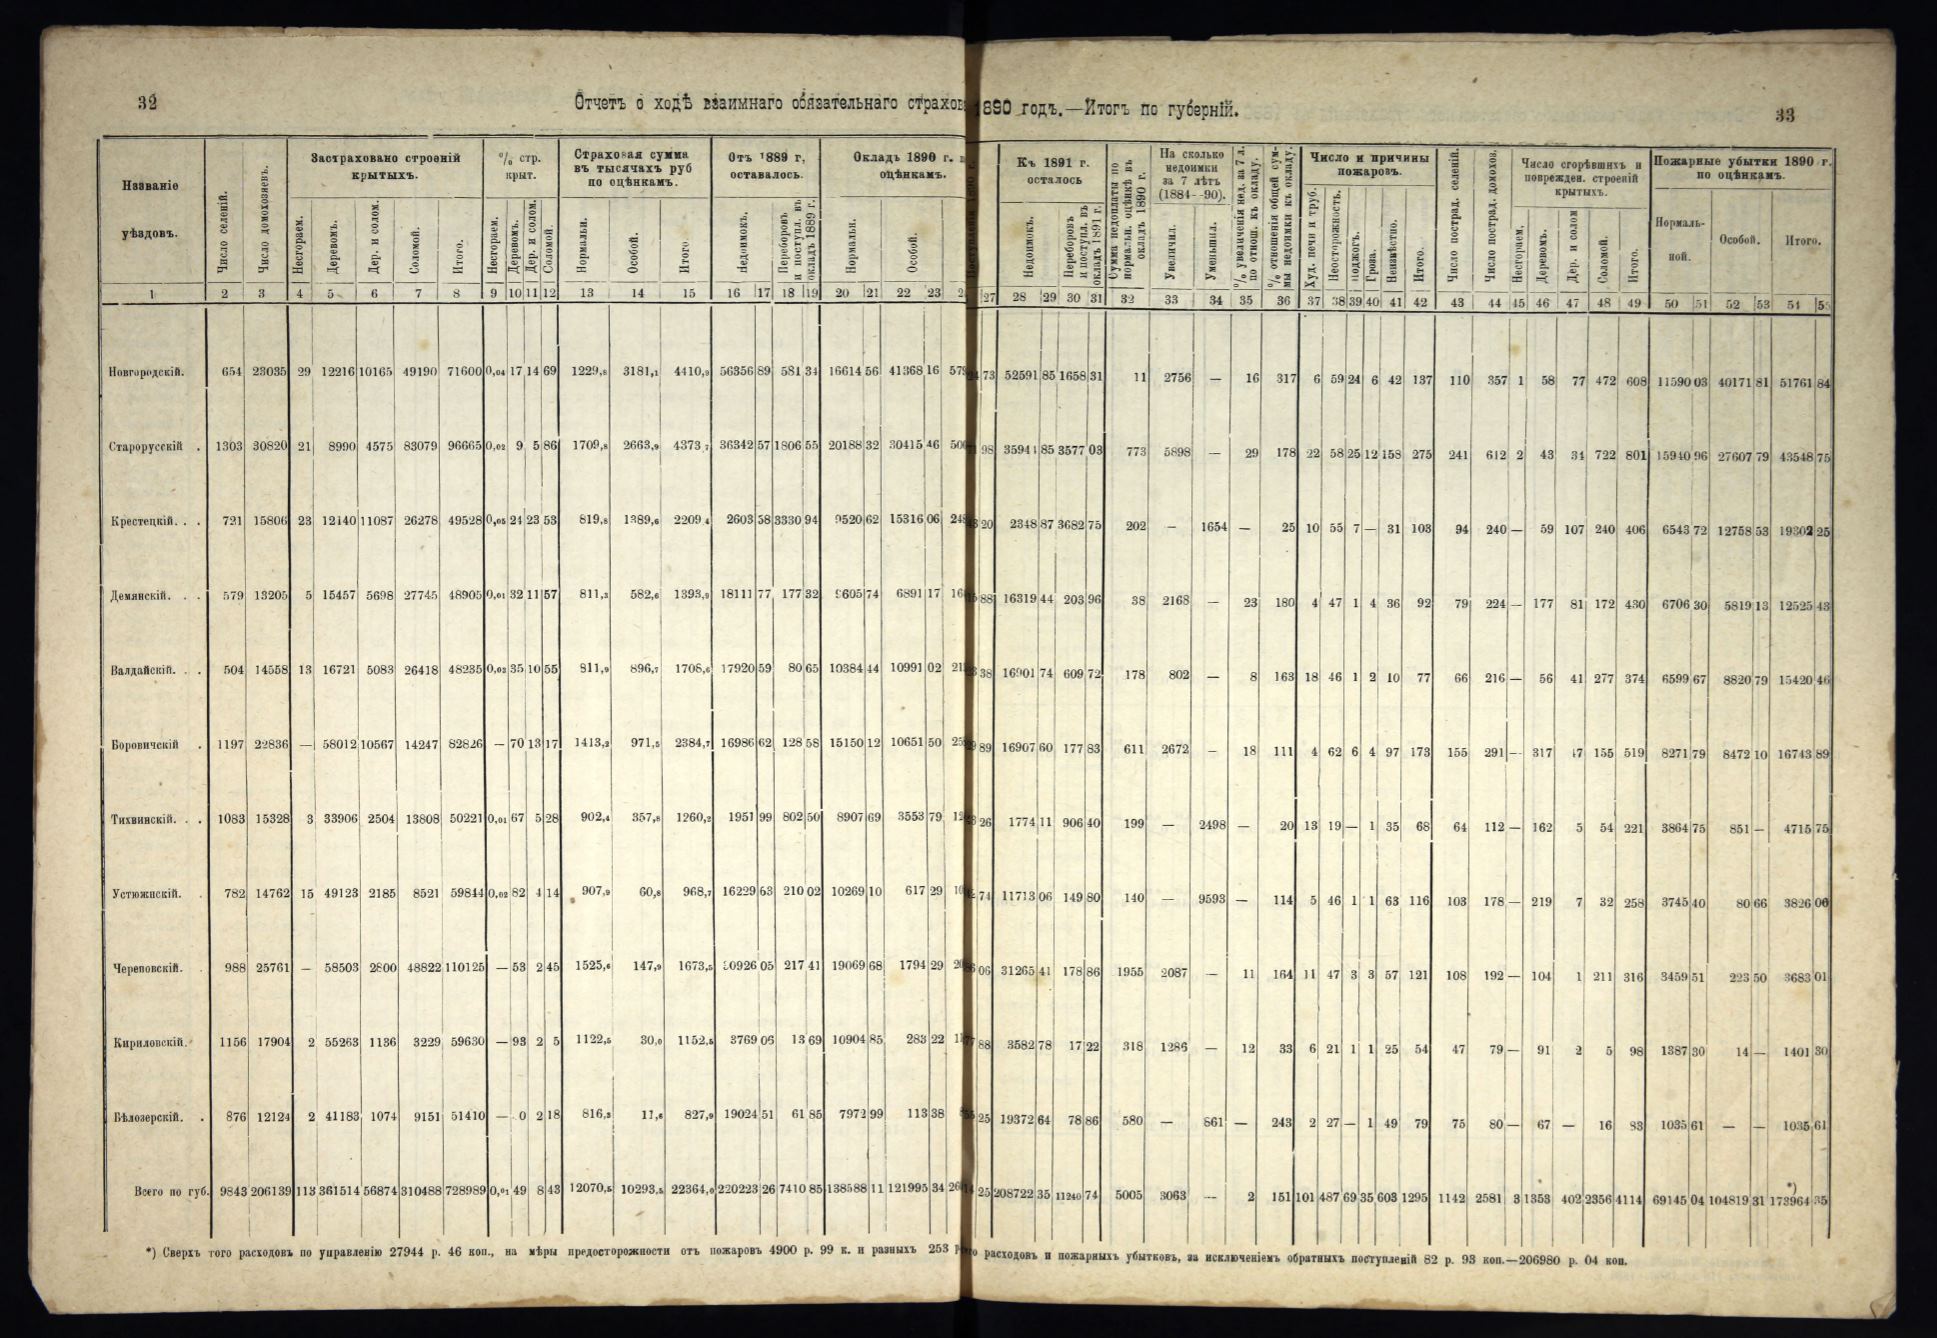 32
Отчетъ о ходѣ взаимнаго обязательнаго страхов 1890 годъ.—Итогъ по губерніи.
33
Названіе уѣздовъ.
Число селеній.
Число домохозяевъ.
Застраховано строеній крытыхъ.
Несгораем.
Деревомъ.
Дер. и солом.
Соломой.
Итого.
% стр. крыт.
Несгораем.
Деревомъ.
Дер. и солом.
Соломой.
Страховая сумма въ тысячахъ руб по оцѣнкамъ.
Нормальн.
Особой.
Итого.
Отъ 1889 г. оставалось.
Недоимокъ.
Переборовъ и поступл. въ окладъ 1889 г.
Окладъ 1890 г. оцѣнкамъ.
Нормальн.
Особой.
Къ 1891 г. осталось
Недоимокъ.
Переборовъ и поступл. въ окладъ 1891 г.
Сумма недоплаты по нормальн. оцѣнкѣ въ окладъ 1890 г.
На сколько недоимки за 7 лѣтъ (1884—90).
Увеличил.
Уменьшил.
% увеличенія нед. за 7 л. по отнош. къ окладу.
% отношенія общей суммы недоимки къ окладу.
Число и причины пожаровъ.
Худ. печи и труб.
Неосторожность.
Поджогъ.
Гроза.
Неизвѣстно.
Итого.
Число пострад. селеній.
Число пострад. домохоз.
Число сгорѣвшихъ и поврежден. строеній крытыхъ.
Несгораем.
Деревомъ.
Дер. и солом
Соломой.
Итого.
Пожарные убытки 1890 г. по оцѣнкамъ.
Нормальной.
Особой.
Итого.
1 2 3 4 5 6 7 8 9 10 11 12 13 14 15 16 17 18 19 20 21 22 23 27 28 29 30 31 32 33 34 35 36 37 38 39 40 41 42 43 44 45 46 47 48 49 50 51 52 53 54
Новгородскій. 654 23035 29 12216 10165 49190 71600 0,04 17 14 69 1229,8 3181,1 4410,9 56356 89 581 34 16614 56 41368 16 73 52591 85 1658 31 11 2756 — 16 317 6 59 24 6 42 137 110 357 1 58 77 472 608 11590 03 40171 81 51761 84
Старорусскій . 1303 30820 21 8990 4575 83079 96665 0,02 9 5 86 1709,8 2663,9 4373,7 36342 57 1806 55 20188 32 30415 46 98 35941 85 3577 03 773 5898 — 29 178 22 58 25 12 158 275 241 612 2 43 34 722 801 15940 96 27607 79 43548 75
Крестецкій. . . 721 15806 23 12140 11087 26278 49528 0,05 24 23 53 819,8 1389,6 2209,4 2603 58 3330 94 9520 62 15316 06 20 2348 87 3682 75 202 — 1654 — 25 10 55 7 — 31 103 94 240 — 59 107 240 406 6543 72 12758 53 19302 25
Демянскій. . . 579 13205 5 15457 5698 27745 48905 0,01 32 11 57 811,3 582,6 1393,9 18111 77 177 32 9605 74 6891 17 88 16319 44 203 96 38 2168 — 23 180 4 47 1 4 36 92 79 224 — 177 81 172 430 6706 30 5819 13 12525 43
Валдайскій. . . 504 14558 13 16721 5083 26418 48235 0,03 35 10 55 811,9 896,7 1708,6 17920 59 80 65 10384 44 10991 02 38 16901 74 609 72 178 802 — 8 163 18 46 1 2 10 77 66 216 — 56 41 277 374 6599 67 8820 79 15420 46
Боровичскій . 1197 22836 — 58012 10567 14247 82826 — 70 13 17 1413,2 971,5 2384,7 16986 62 128 58 15150 12 10651 50 89 16907 60 177 83 611 2672 — 18 111 4 62 6 4 97 173 155 291 — 317 47 155 519 8271 79 8472 10 16743 89
Тихвинскій. . . 1083 15328 3 33906 2504 13808 50221 0,01 67 5 28 902,4 357,8 1260,2 1951 99 802 50 8907 69 3553 79 26 1774 11 906 40 199 — 2498 — 20 13 19 — 1 35 68 64 112 — 162 5 54 221 3864 75 851 — 4715 75
Устюжнскій. . 782 14762 15 49123 2185 8521 59844 0,02 82 4 14 907,9 60,8 968,7 16229 63 210 02 10269 10 617 29 74 11713 06 149 80 140 — 9593 — 114 5 46 1 1 63 116 103 178 — 219 7 32 258 3745 40 80 66 3826 06
Череповскій. . 988 25761 — 58503 2800 48822 110125 — 53 2 45 1525,6 147,9 1673,5 0926 05 217 41 19069 68 1794 29 06 31265 41 178 86 1955 2087 — 11 164 11 47 3 3 57 121 108 192 — 104 1 211 316 3459 51 223 50 3683 01
Кириловскій. 1156 17904 2 55263 1136 3229 59630 — 93 2 5 1122,5 30,0 1152,5 3769 06 13 69 10904 85 283 22 88 3582 78 17 22 318 1286 — 12 33 6 21 1 1 25 54 47 79 — 91 2 5 98 1387 30 14 — 1401 30
Бѣлозерскій. . 876 12124 2 41183 1074 9151 51410 — 0 2 18 816,3 11,6 827,9 19024 51 61 85 7972 99 113 38 25 19372 64 78 86 580 — 861 — 243 2 27 — 1 49 79 75 80 — 67 — 16 83 1035 61 — — 1035 61
Всего по губ. 9843 206139 113 361514 56874 310488 728989 0,01 49 8 43 12070,5 10293,5 22364,0 220223 26 7410 85 138588 11 121995 34 25 208722 35 11240 74 5005 3063 — 2 151 101 487 69 35 603 1295 1142 2581 3 1353 402 2356 4114 69145 04 104819 31 *) 173964 35
*) Сверхъ того расходовъ по управленію 27944 р. 46 коп., на мѣры предосторожности отъ пожаровъ 4900 р. 99 к. и разныхъ 253 р расходовъ и пожарныхъ убытковъ, за исключеніемъ обратныхъ поступленій 82 р. 93 коп.—206980 р. 04 коп.